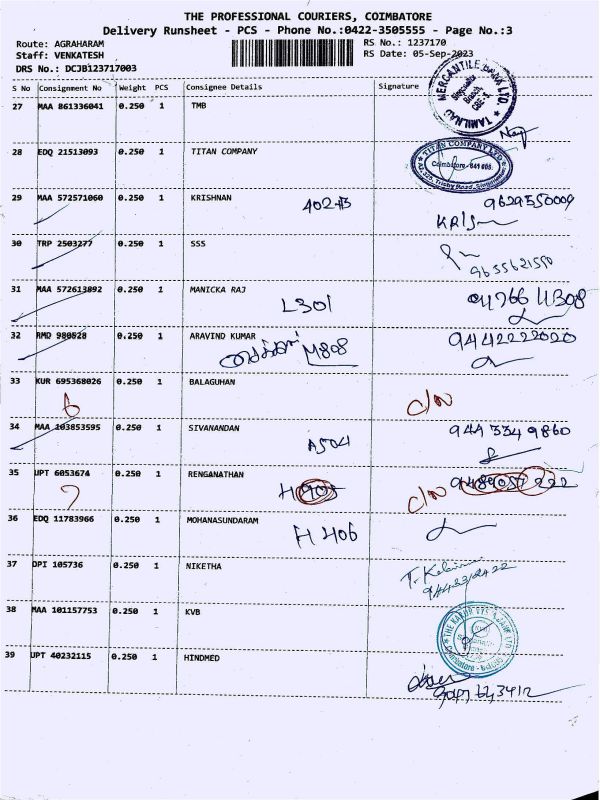 THE PROFESSIONAL COURIERS, COIMBATORE
Delivery Runsheet - PCS - Phone No.:0422-3505555 - Page No.:3
Route: AGRAHARAM
Staff: VENKATESH
DRS No.: DCJB123717003
RS No.: 1237170
RS Date: 05-Sep-2023
S No Consignment No Weight PCS Consignee Details Signature
27 MAA 861336041 0.250 1 TMB
TAMILNAD MERCANTILE BANK LTD.
28 EDQ 21513093 0.250 1 TITAN COMPANY
TITAN COMPANY LTD
Coimbatore 641 005
29 MAA 572571060 0.250 1 KRISHNAN 9629550009
30 TRP 2503277 0.250 1 SSS
9655621550
31 MAA 572613892 0.250 1 MANICKA RAJ
L301
32 RMD 980528 0.250 1 ARAVIND KUMAR 9442222020
M808
33 KUR 695368026 0.250 1 BALAGUHAN
C/N
34 MAA 103853595 0.250 1 SIVANANDAN
A504
35 UPT 6053674 0.250 1 RENGANATHAN
H 905 C/N
36 EDQ 11783966 0.250 1 MOHANASUNDARAM
H 406
37 DPI 105736 0.250 1 NIKETHA
38 MAA 101157753 0.250 1 KVB
THE KARUR VYSYA BANK LTD
39 UPT 40232115 0.250 1 HINDMED